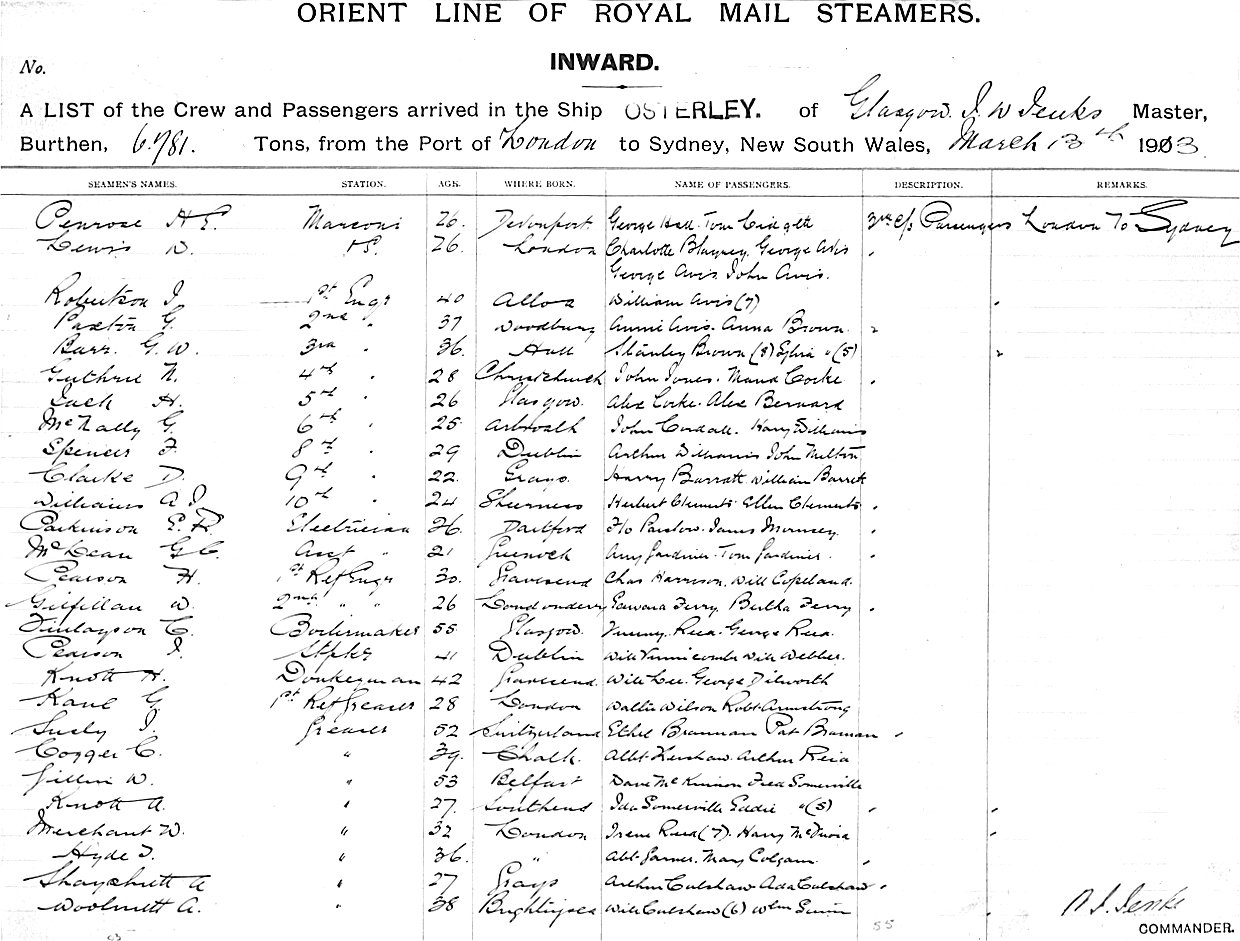 ORIENT LINE OF ROYAL MAIL STEAMERS.
INWARD.
No.
A LIST of the Crew and Passengers arrived in the Ship OSTERLEY. of Glasgow. J. W Jenks Master,
Burthen, 6.781. Tons, from the Port of London to Sydney, New South Wales, March 13th 1903.
SEAMEN'S NAMES. STATION. AGE. WHERE BORN. NAME OF PASSENGERS. DESCRIPTION. REMARKS.
Penrose H E. Marconi 26. Devonport. George Hall. Tom Lidgett 3rd Passengers London To Sydney
Lewis D. 26. London Charlotte Blayney. George Avis
George Avis. John Avis.
Robertson J. 1st Engr 40 Alloa William Avis (7)
Paxton G. 2nd " 37 Woodbury Annie Avis. Anna Brown.
Barr. G. W. 3rd " 36. Hull Stanley Brown (8) Sylvia " (5)
Guthrie N. 4th " 28 Christchurch John Jones. Maud Corke
Jack H. 5th " 26 Glasgow. Alex Corke. Alex Bernard
McNally G. 6th " 25 Arbroath John Cordall. Harry Williams
Spencer F. 8th " 29 Dublin Arthur Williams John Milton
Clarke D. 9th " 22. Grays. Harry Barratt William Barratt
Williams A J. 10th " 24 Sheerness Herbert Clements. Ellen Clements
Parkinson E. R. Electrician 26. Dartford Flo Parslow. James Mounsey.
McLean G C. Asst " 21 Greenock Amy Gardiner. Tom Gardiner.
Pearson H. 1st Ref Engr 30. Gravesend Chas Harrison. Will Copeland.
Gilfillan W. 2nd " " 26 Londonderry Edward Ferry. Bertha Ferry
Finlayson C. Boilermaker 55. Glasgow. George Reid.
Pearson J. Stpkr 41 Dublin Will Vinnicombe Will Webber.
Knott H. Donkeyman 42 Gravesend. Will Lee. George Dilworth
Kane G 1st Ref Greaser 28 London Walter Wilson Robt Armstrong
J. Greaser 52 Switzerland Ethel Brannan Pat Brannan
Cogger C. " 39. Chalk. Albt Kershaw. Arthur Reid
W. " 53 Belfast Dave McKinnon Fred Somerville
Knott A. " 27. Southend Ida Somerville Eddie " (5)
Merchant W. " 32 London Irene Reid (7). Harry
Hyde T. " 36. " Albt Garner. Mary Colgan.
A " 27 Grays Arthur Culshaw Ada Culshaw
Woolnett A. " 38 Brightlingsea Will Culshaw (6) Wlm
55
Jenks
COMMANDER.